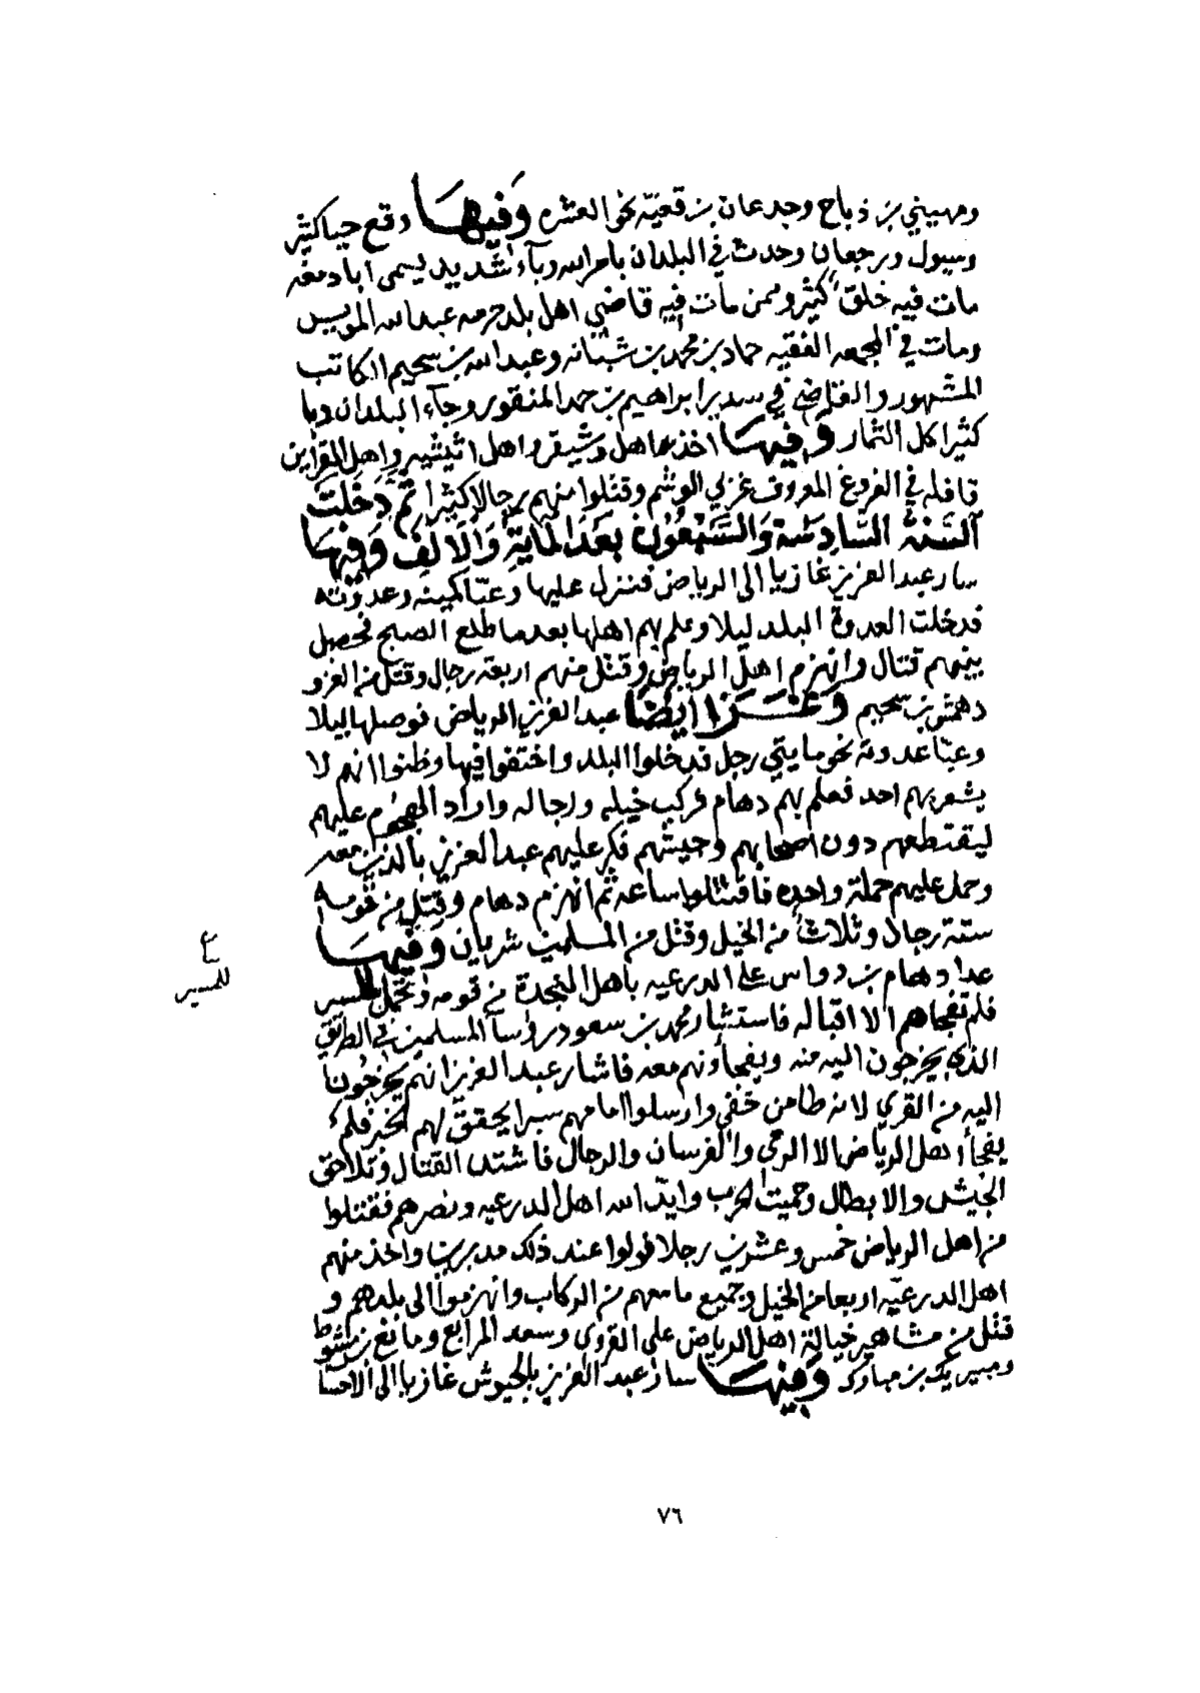 ومهيني بن ذباح وجدعان بن قعيّه نحو العشره وَفيهَا وقع حيا كثير
وسيول ورجعان وحدث في البلدان بامر الله وبآء شديد يسمى ابا دمغه
مات فيه خلق كثير وممن مات فيه قاضي اهل بلد حرمه عبدالله المويس
ومات في المجمعه الفقيه حماد بن محمد بن شبانه وعبدالله بن سحيم الكاتب
المشهور والقاضي في سدير ابراهيم بن حمد المنقور وجآء البلدان دبا
كثيرا كل الثمار وَفيهَا اخذوا اهل وشيقر واهل اثيثيه واهل القراين
قافله في الفروغ المعروف غربي الوشم وقتلوا منهم رجالا كثيرا ثم دَخلتْ
السَنةُ السَادِسَة وَالسَبْعُون بعدَ المايَةِ وَالالفِ وَفيهَا
سار عبدالعزيز غازيا الى الرياض فنزل عليها وعبّا كمينه وعدوته
فدخلت العدوة البلد ليلا وعلم بهم اهلها بعد ما طلع الصبح فحصل
بينهم قتال وانهزم اهل الرياض وقتل منهم اربعة رجال وقتل من الغزو
دهمش بن سحيم وَغَــزا ايضًا عبدالعزيز الرياض فوصلها ليلا
وعبّا عدوته نحو مايتي رجل فدخلوا البلد واختفوا فيها وظنوا انهم لا
يشعر بهم احد فعلم بهم دهام فركب خيله ورجاله واراد الهجوم عليهم
ليقتطعهم دون اصحابهم وجيشهم فكر عليهم عبدالعزيز بالذين معه
وحمل عليهم حملة واحده فاقتتلوا ساعه ثم انهزم دهام وقتل من قومه
ستة رجال وثلاث من الخيل وقتل من المسلمين شريان وَفيهَا
عدا دهام بن دواس على الدرعيه باهل النجدة من قومه وتحمل للمسير
ع
للمسير
فلم تفجاهم الا اقباله فاستشار محمد بن سعود رؤسآ المسلمين في الطريق
الذي يخرجون اليه منه ويفجأونهم معه فاشار عبدالعزيز انهم يخرجون
اليه من القري لانه طامن خفي وارسلوا امامهم سبرا يحقق لهم الخبر فلم
يفجأ اهل الرياض الا الرمي والفرسان والرجال فاشتد القتال وتلاحق
الجيش والابطال وحميت الحرب وايد الله اهل الدرعيه ونصرهم فقتلوا
من اهل الرياض خمس وعشرين رجلا فولوا عند ذلك مدبرين واخذ منهم
اهل الدرعيّه اربعا من الخيل وجميع ما معهم من الركاب وانهزموا الى بلدهم و
قتل من مشاهير خيالة اهل الرياض علي القروي وسعد المرابع ومانع بن مشوط
ومبيريك بن مبارك وَفيهَا سار عبدالعزيز بالجيوش غازيا الى الاحسا
٧٦